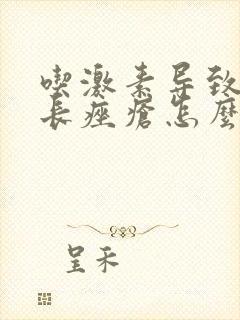 喫激素导致
長痤瘡怎麼
呈禾